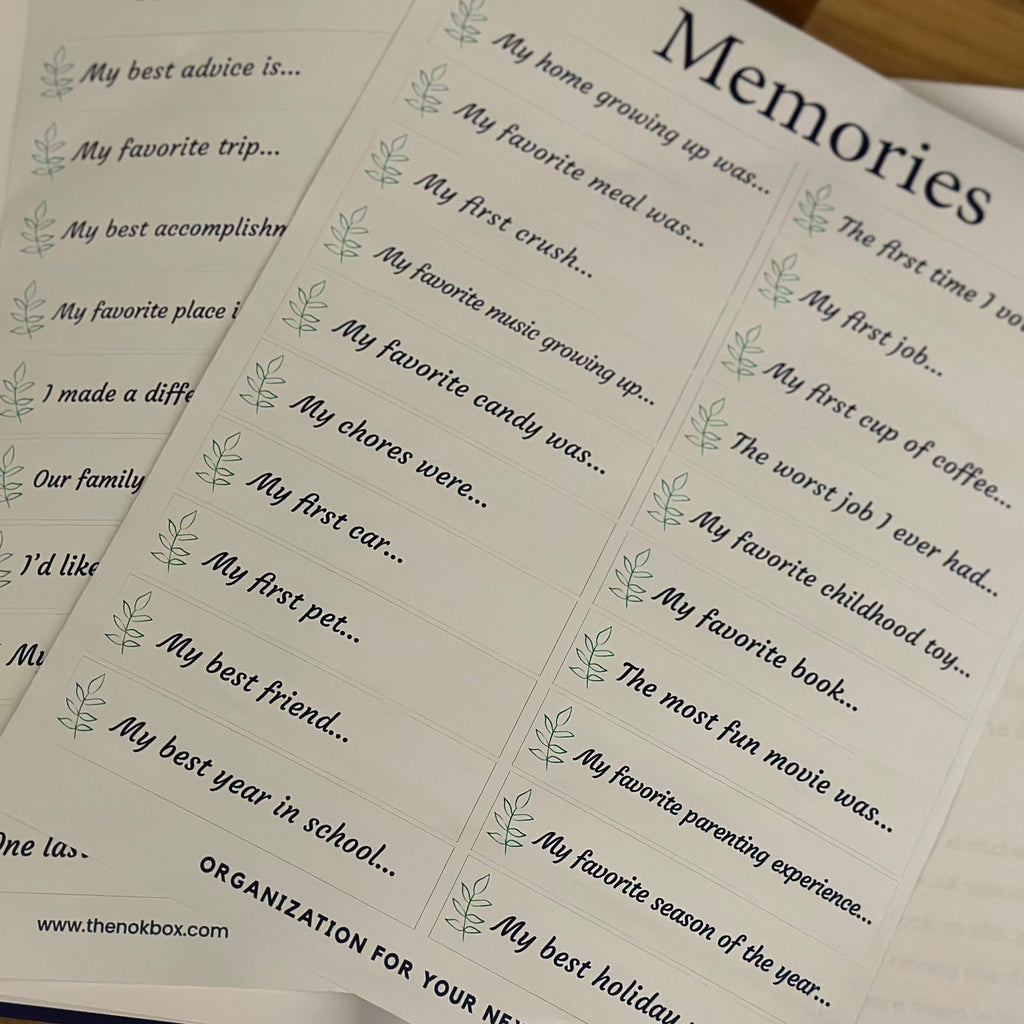 My best advice is...
My favorite trip...
My best accomplishm
My favorite place i
I made a diffe
Our family
I'd like
My
One las
www.thenokbox.com
Memories
My home growing up was...
My favorite meal was...
My first crush...
My favorite music growing up...
My favorite candy was...
My chores were...
My first car...
My first pet...
My best friend...
My best year in school...
The first time I vo
My first job...
My first cup of coffee...
The worst job I ever had...
My favorite childhood toy...
My favorite book...
The most fun movie was...
My favorite parenting experience...
My favorite season of the year...
My best holiday
ORGANIZATION FOR YOUR NEX